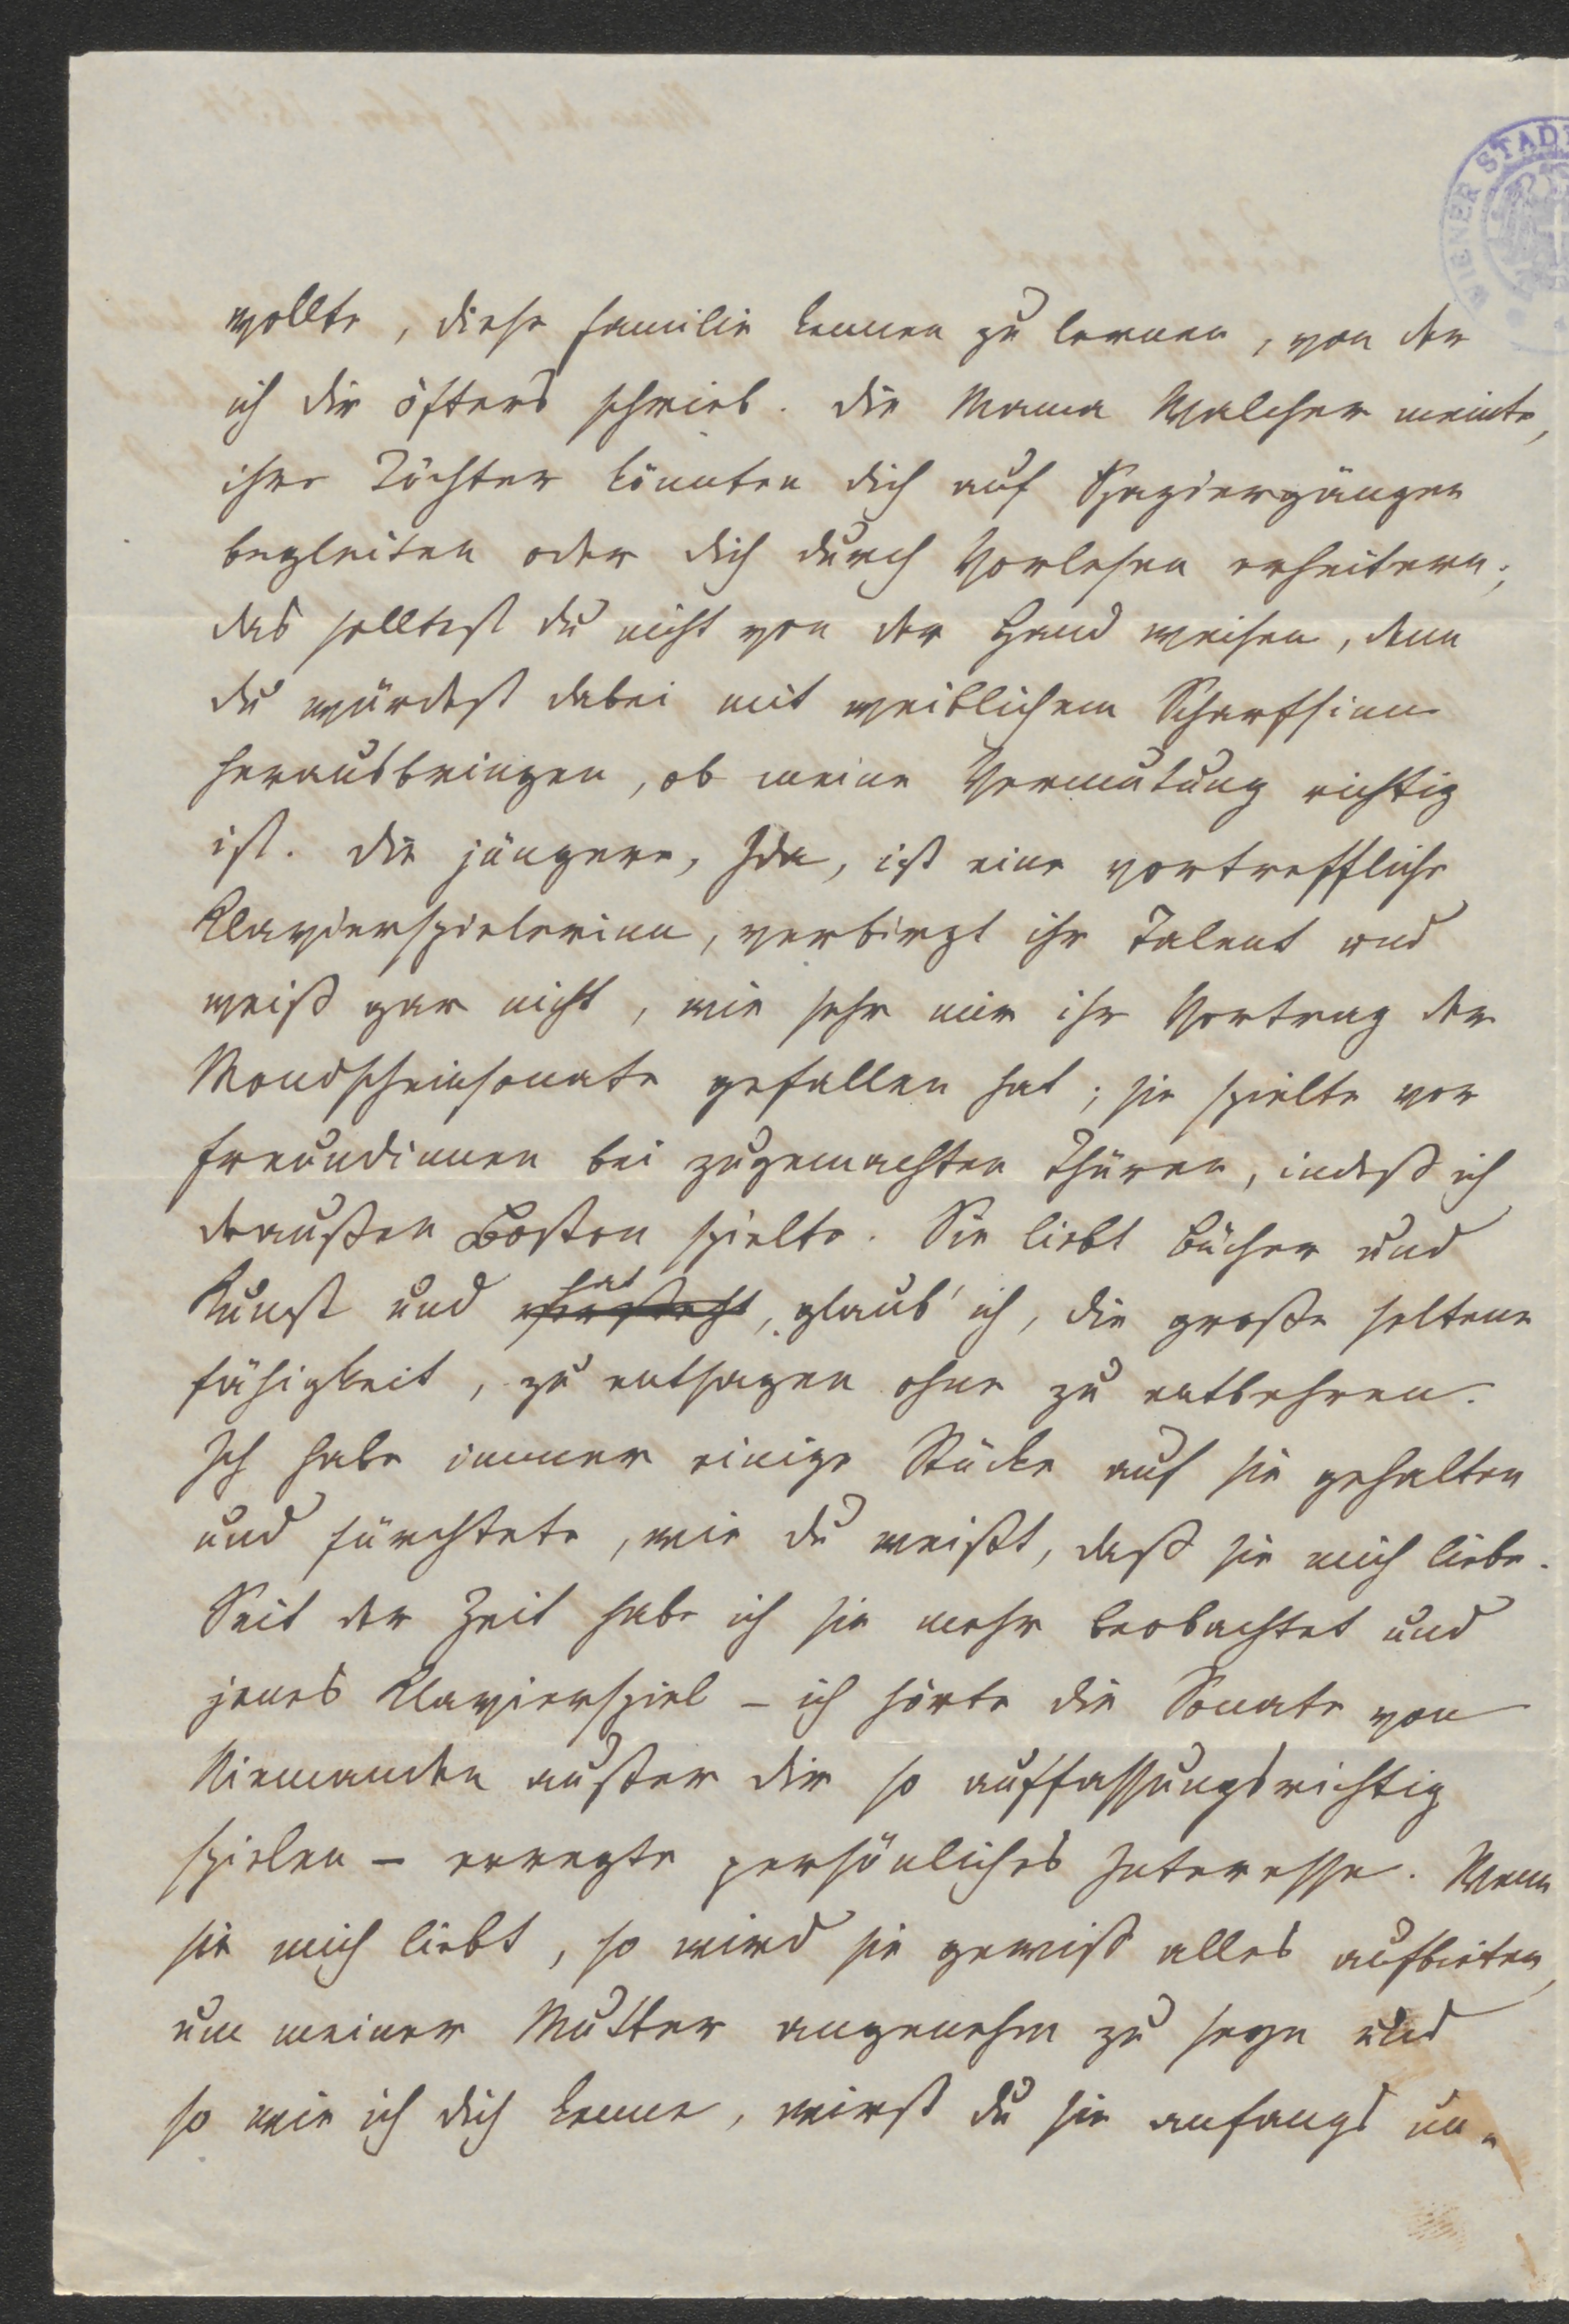 WIENER STAD
wollte, diese Familie kennen zu lernen, von der
ich dir öfters schrieb. Die Mama Walcher meinte,
ihre Töchter könnten dich auf Spaziergängen
begleiten oder dich durch Vorlesen erheitern;
das solltest du nicht von der Hand weisen, denn
du würdest dabei mit weiblichem Scharfsinn
herausbringen, ob meine Vermutung richtig
ist. Die jüngere, Ida, ist eine vortreffliche
Klavierspielerinn, verbirgt ihr Talent und
weiß gar nicht, wie sehr mir ihr Vortrag der
Mondscheinsonate gefallen hat; sie spielte vor
Freundinnen bei zugemachten Thüren, indeß ich
draußen Boston spielte. Sie liebt Bücher und
Kunst und hat, glaub' ich, die große seltene
Fähigkeit, zu entsagen ohne zu entbehren.
Ich habe immer einige Stücke auf sie gehalten
und fürchtete, wie du weißt, daß sie mich liebe.
Seit der Zeit habe ich sie mehr beobachtet und
jenes Klavierspiel – ich hörte die Sonate von
Niemanden außer dir so auffassungsrichtig
spielen – erregte persönliches Interesse. Wenn
sie mich liebt, so wird sie gewiß alles aufbieten,
um meiner Mutter angenehm zu seyn und
so wie ich dich kenne, wirst du sie anfangs un-